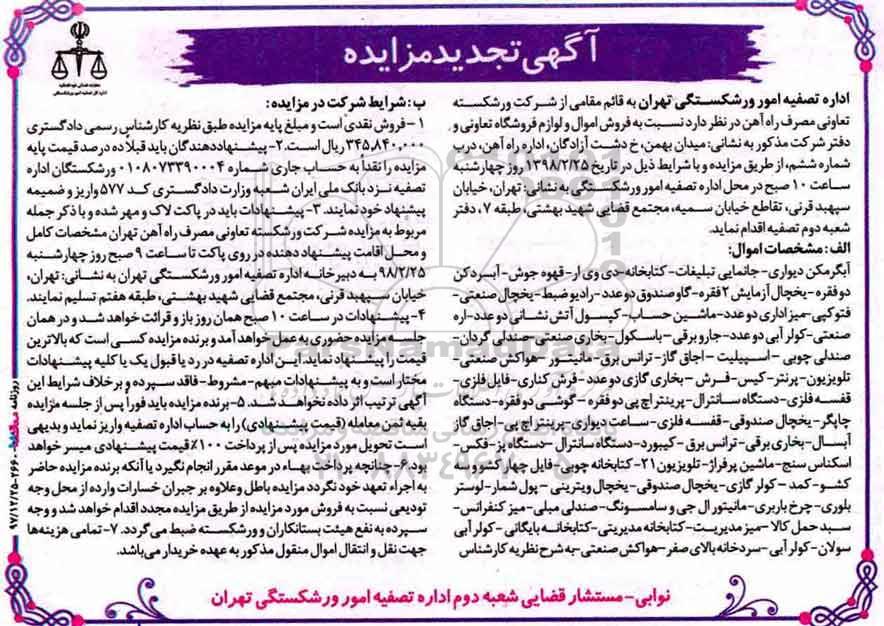 آگهی تجدید مزایده
اداره تصفیه امور ورشکستگی تهران به قائم مقامی از شرکت ورشکسته
تعاونی مصرف راه آهن در نظر دارد نسبت به فروش اموال و لوازم فروشگاه تعاونی و
دفتر شرکت مذکور به نشانی: میدان بهمن، خ دشت آزادگان، اداره راه آهن، درب
شماره ششم، از طریق مزایده و با شرایط ذیل در تاریخ ۱۳۹۸/۲/۲۵ روز چهارشنبه
ساعت ۱۰ صبح در محل اداره تصفیه امور ورشکستگی به نشانی: تهران، خیابان
سپهبد قرنی، تقاطع خیابان سمیه، مجتمع قضایی شهید بهشتی، طبقه ۷، دفتر
شعبه دوم تصفیه اقدام نماید.
الف: مشخصات اموال:
آبگرمکن دیواری- جانمایی تبلیغات- کتابخانه-دی وی ار- قهوه جوش- آبسردکن
دو فقره- یخچال آزمایش ۲ فقره- گاوصندوق دو عدد- رادیو ضبط- یخچال صنعتی-
فتوکپی- میز اداری دو عدد- ماشین حساب- کپسول آتش نشانی دو عدد- اره
صنعتی- کولر آبی دو عدد- جارو برقی- باسکول- بخاری صنعتی- صندلی گردان-
صندلی چوبی - اسپیلیت - اجاق گاز- ترانس برق - مانیتور - هواکش صنعتی-
تلویزیون- پرنتر- کیس- فرش - بخاری گازی دو عدد- فرش کناری- فایل فلزی-
قفسه فلزی- دستگاه سانترال- پرینتر اچ پی دو فقره- گوشی دو فقره- دستگاه
چاپگر- یخچال صندوقی- قفسه فلزی- ساعت دیواری- پرینتر اچ پی- اجاق گاز
آبسال- بخاری برقی- ترانس برق- کیبورد- دستگاه سانترال- دستگاه پز- فکس-
اسکناس سنج- ماشین پرفراژ- تلویزیون ۲۱- کتابخانه چوبی- فایل چهار کشو و سه
کشو- کمد - کولر گازی- یخچال صندوقی- یخچال ویترینی- پول شمار- لوستر
بلوری- چرخ باربری- مانیتور ال جی و سامسونگ- صندلی مبلی- میز کنفرانس-
سبد حمل کالا - میز مدیریت- کتابخانه مدیریتی- کتابخانه بایگانی- کولر آبی
سولان- کولر آبی- سردخانه بالای صفر- هواکش صنعتی- به شرح نظریه کارشناس
ب: شرایط شرکت در مزایده:
۱- فروش نقدی است و مبلغ پایه مزایده طبق نظریه کارشناس رسمی دادگستری
۳۴۵,۸۴۰,۰۰۰ ریال است. ۲- پیشنهاددهندگان باید قبلا ده درصد قیمت پایه
مزایده را نقداً به حساب جاری شماره ۰۱۰۸۰۷۳۳۹۰۰۰۴ ورشکستگان اداره
تصفیه نزد بانک ملی ایران شعبه وزارت دادگستری کد ۵۷۷ واریز و ضمیمه
پیشنهاد خود نمایند. ۳- پیشنهادات باید در پاکت لاک و مهر شده و با ذکر جمله
مربوط به مزایده شرکت ورشکسته تعاونی مصرف راه آهن تهران مشخصات کامل
و محل اقامت پیشنهاد دهنده در روی پاکت تا ساعت ۹ صبح روز چهارشنبه
۹۸/۲/۲۵ به دبیرخانه اداره تصفیه امور ورشکستگی تهران به نشانی: تهران،
خیابان سپهبد قرنی، مجتمع قضایی شهید بهشتی، طبقه هفتم تسلیم نمایند.
۴- پیشنهادات در ساعت ۱۰ صبح همان روز باز و قرائت خواهد شد و در همان
جلسه مزایده حضوری به عمل خواهد آمد و برنده مزایده کسی است که بالاترین
قیمت را پیشنهاد نماید. این اداره تصفیه در رد یا قبول یک یا کلیه پیشنهادات
مختار است و به پیشنهادات مبهم- مشروط- فاقد سپرده و بر خلاف شرایط این
آگهی ترتیب اثر داده نخواهد شد. ۵- برنده مزایده باید فوراً پس از جلسه مزایده
بقیه ثمن معامله (قیمت پیشنهادی) را به حساب اداره تصفیه واریز نماید و بدیهی
است تحویل مورد مزایده پس از پرداخت ۱۰۰٪ قیمت پیشنهادی میسر خواهد
بود. ۶- چنانچه پرداخت بهاء در موعد مقرر انجام نگیرد یا آنکه برنده مزایده حاضر
به اجراء تعهد خود نگردد مزایده باطل و علاوه بر جبران خسارات وارده از محل وجه
تودیعی نسبت به فروش مورد مزایده از طریق مزایده مجدد اقدام خواهد شد و وجه
سپرده به نفع هیئت بستانکاران و ورشکسته ضبط می گردد. ۷- تمامی هزینه ها
جهت نقل و انتقال اموال منقول مذکور به عهده خریدار می باشد.
نوابی- مستشار قضایی شعبه دوم اداره تصفیه امور ورشکستگی تهران